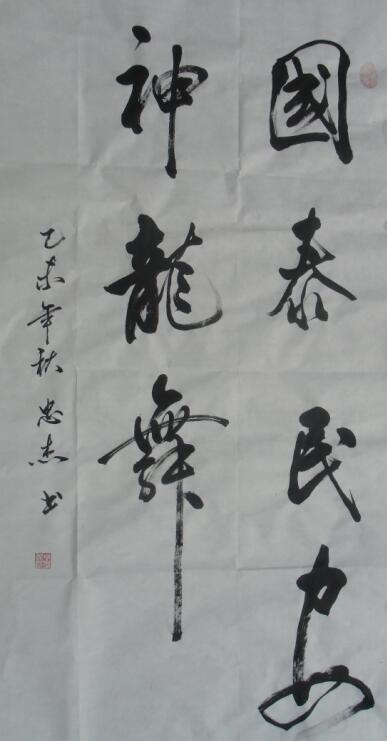 國泰民安
神龍舞
乙未年秋 忠杰书